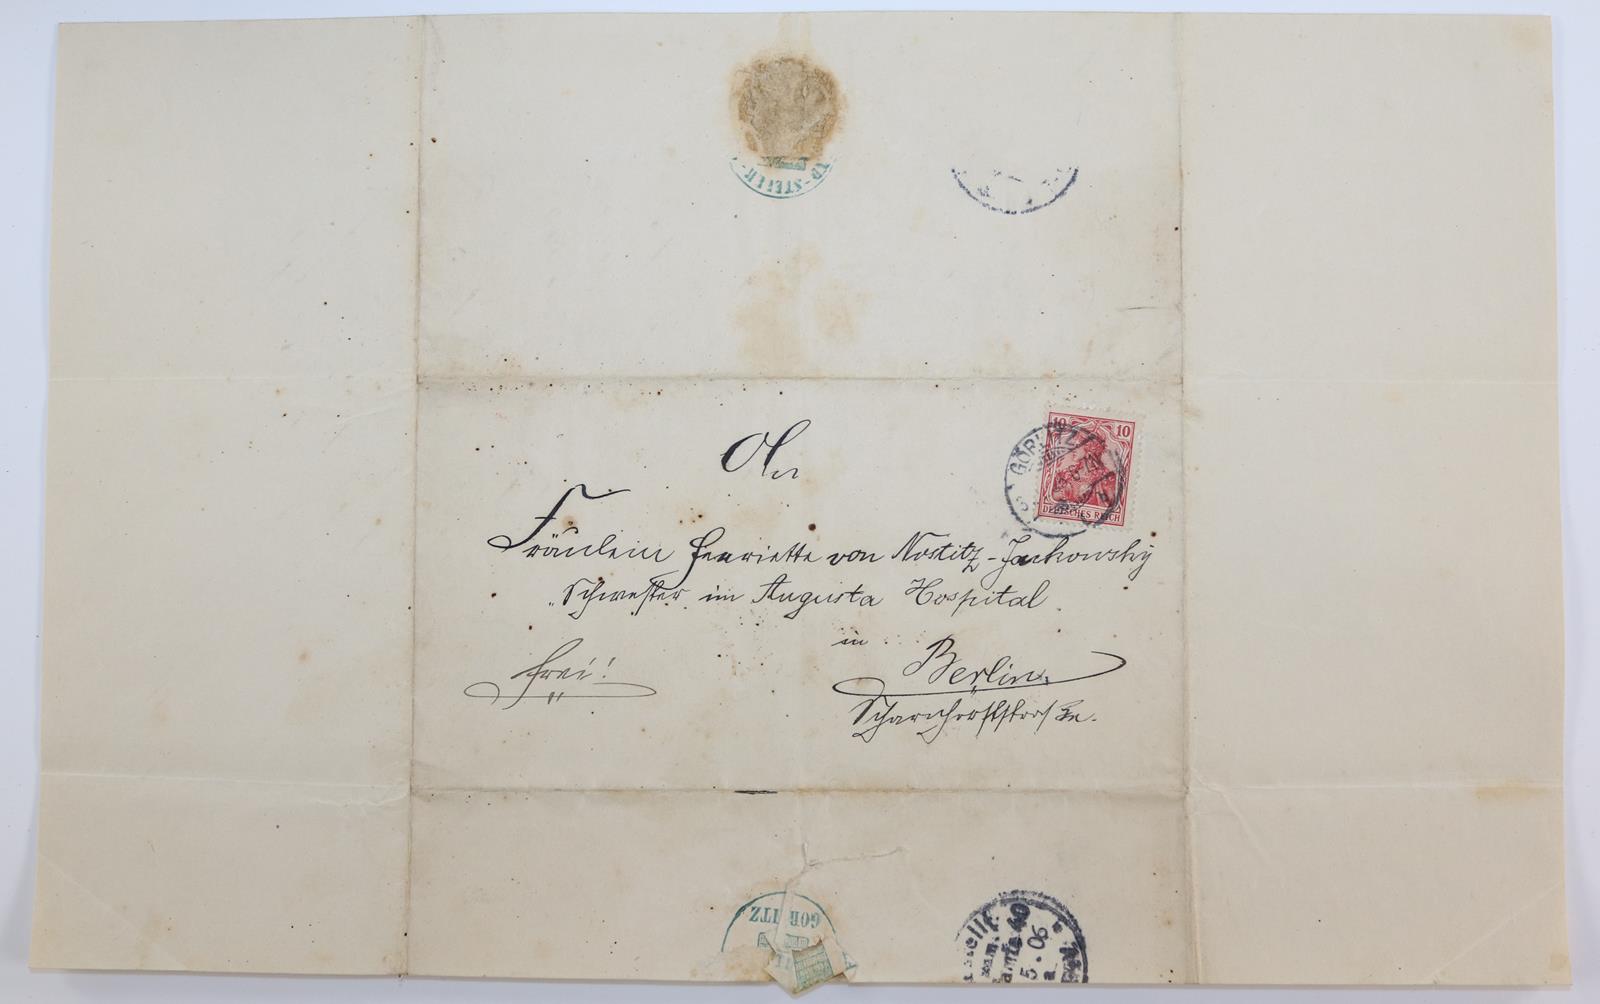 An
Fräulein Henriette von Nostitz-Jackowsky
Schwester im Augusta Hospital
in
Berlin.
Scharnhorststrasse.
frei!
10 10
DEUTSCHES REICH
GÖRLITZ
GÖRLITZ
5.06